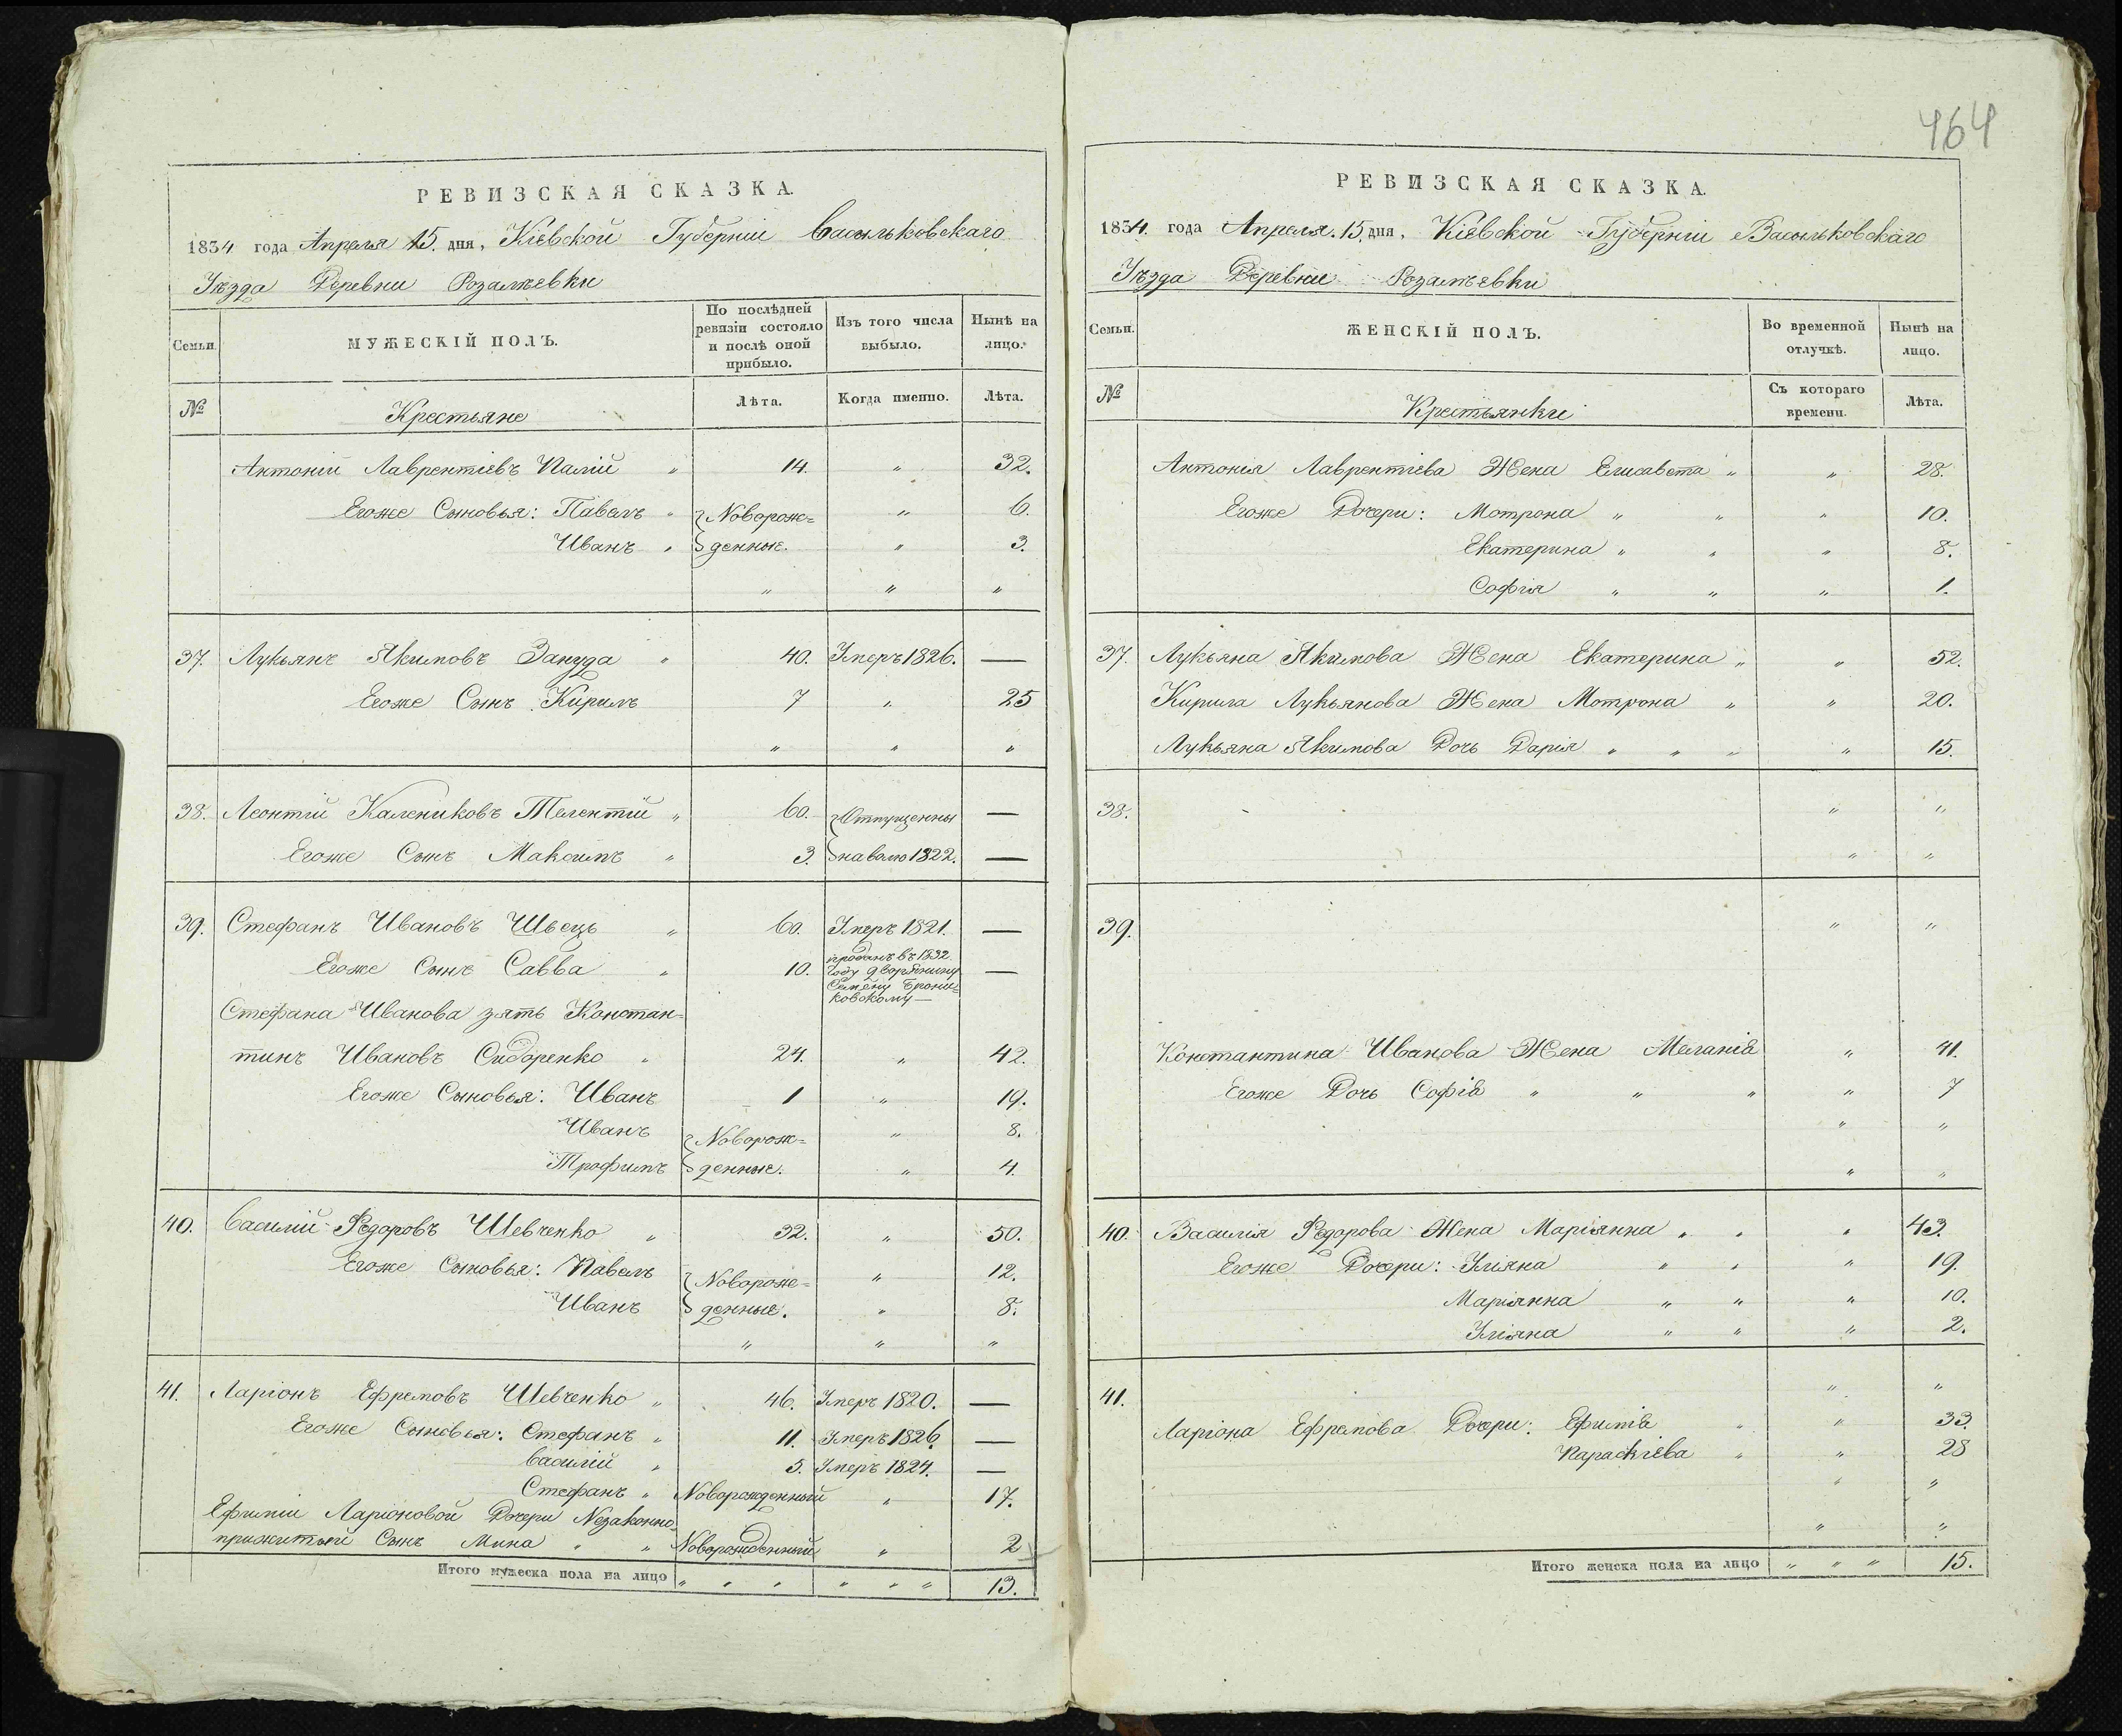 464
РЕВИЗСКАЯ СКАЗКА.
1834 года Апреля 15. дня, Кіевской Губерніи Васильковскаго
Уѣзда Деревни Розалѣевки
Семьи.
МУЖЕСКІЙ ПОЛЪ.
По послѣдней ревизіи состояло и послѣ оной прибыло.
Изъ того числа выбыло.
Нынѣ на лицо.
№
Крестьяне
Лѣта.
Когда именно.
Лѣта.
Антоній Лаврентіевъ Палій " 14. " 32.
Егоже Сыновья: Павелъ " Новорож= " 6.
Иванъ " денные. " 3.
" " "
37. Лукьянъ Якимовъ Зануда " 40. Умеръ 1826. —
Егоже Сынъ Кирилъ 7 " 25
" " "
38. Леонтій Калениковъ Телентій " 60. Отпущенны —
Егоже Сынъ Максимъ " 3. на волю 1822. —
39. Стефанъ Ивановъ Швець " 60. Умеръ 1821. —
Егоже Сынъ Савва " 10. проданъ въ 1832 —
году дворянину
Семену Брони=
ковскому —
Стефана Иванова зять Констан=
тинъ Ивановъ Сидоренко " 24. " 42.
Егоже Сыновья: Иванъ 1 " 19.
Иванъ Новорож= " 8.
Трофимъ денные. " 4.
40. Василій Федоровъ Шевченко " 32. " 50.
Егоже Сыновья: Павелъ Новорож= " 12.
Иванъ денные. " 8.
" " "
41. Ларіонъ Ефремовъ Шевченко " 46. Умеръ 1820. —
Егоже Сыновья: Стефанъ " 11. Умеръ 1826. —
Василій " 5. Умеръ 1824. —
Стефанъ " Новорожденный " 17.
Ефиміи Ларіоновой Дочери Незаконно=
прижитый Сынъ Мина " " Новорожденный " 2
Итого мужеска пола на лицо " " " " " " 13.
РЕВИЗСКАЯ СКАЗКА.
1834 года Апреля 15. дня, Кіевской Губерніи Васильковскаго
Уѣзда Деревни Розалѣевки
Семьи.
ЖЕНСКІЙ ПОЛЪ.
Во временной отлучкѣ.
Нынѣ на лицо.
№
Крестьянки
Съ котораго времени.
Лѣта.
Антонія Лаврентіева Жена Елисавета " " 28.
Егоже Дочери: Мотрона " " " 10.
Екатерина " " " 8.
Софія " " " 1.
37. Лукьяна Якимова Жена Екатерина " " 52.
Кирила Лукьянова Жена Мотрона " " 20.
Лукьяна Якимова Дочь Дарія " " " " 15.
38. " "
" "
39. " "
Константина Иванова Жена Меланія " 41.
Егоже Дочь Софія " " " " 7
" "
" "
40. Василія Федорова Жена Маріянна " " " 43.
Егоже Дочери: Уліяна " " " 19.
Маріянна " " " 10.
Уліяна " " " 2.
41. " "
Ларіона Ефремова Дочери: Ефимія " " 33.
Параскіева " " 28
" "
" "
Итого женска пола на лицо " " " 15.